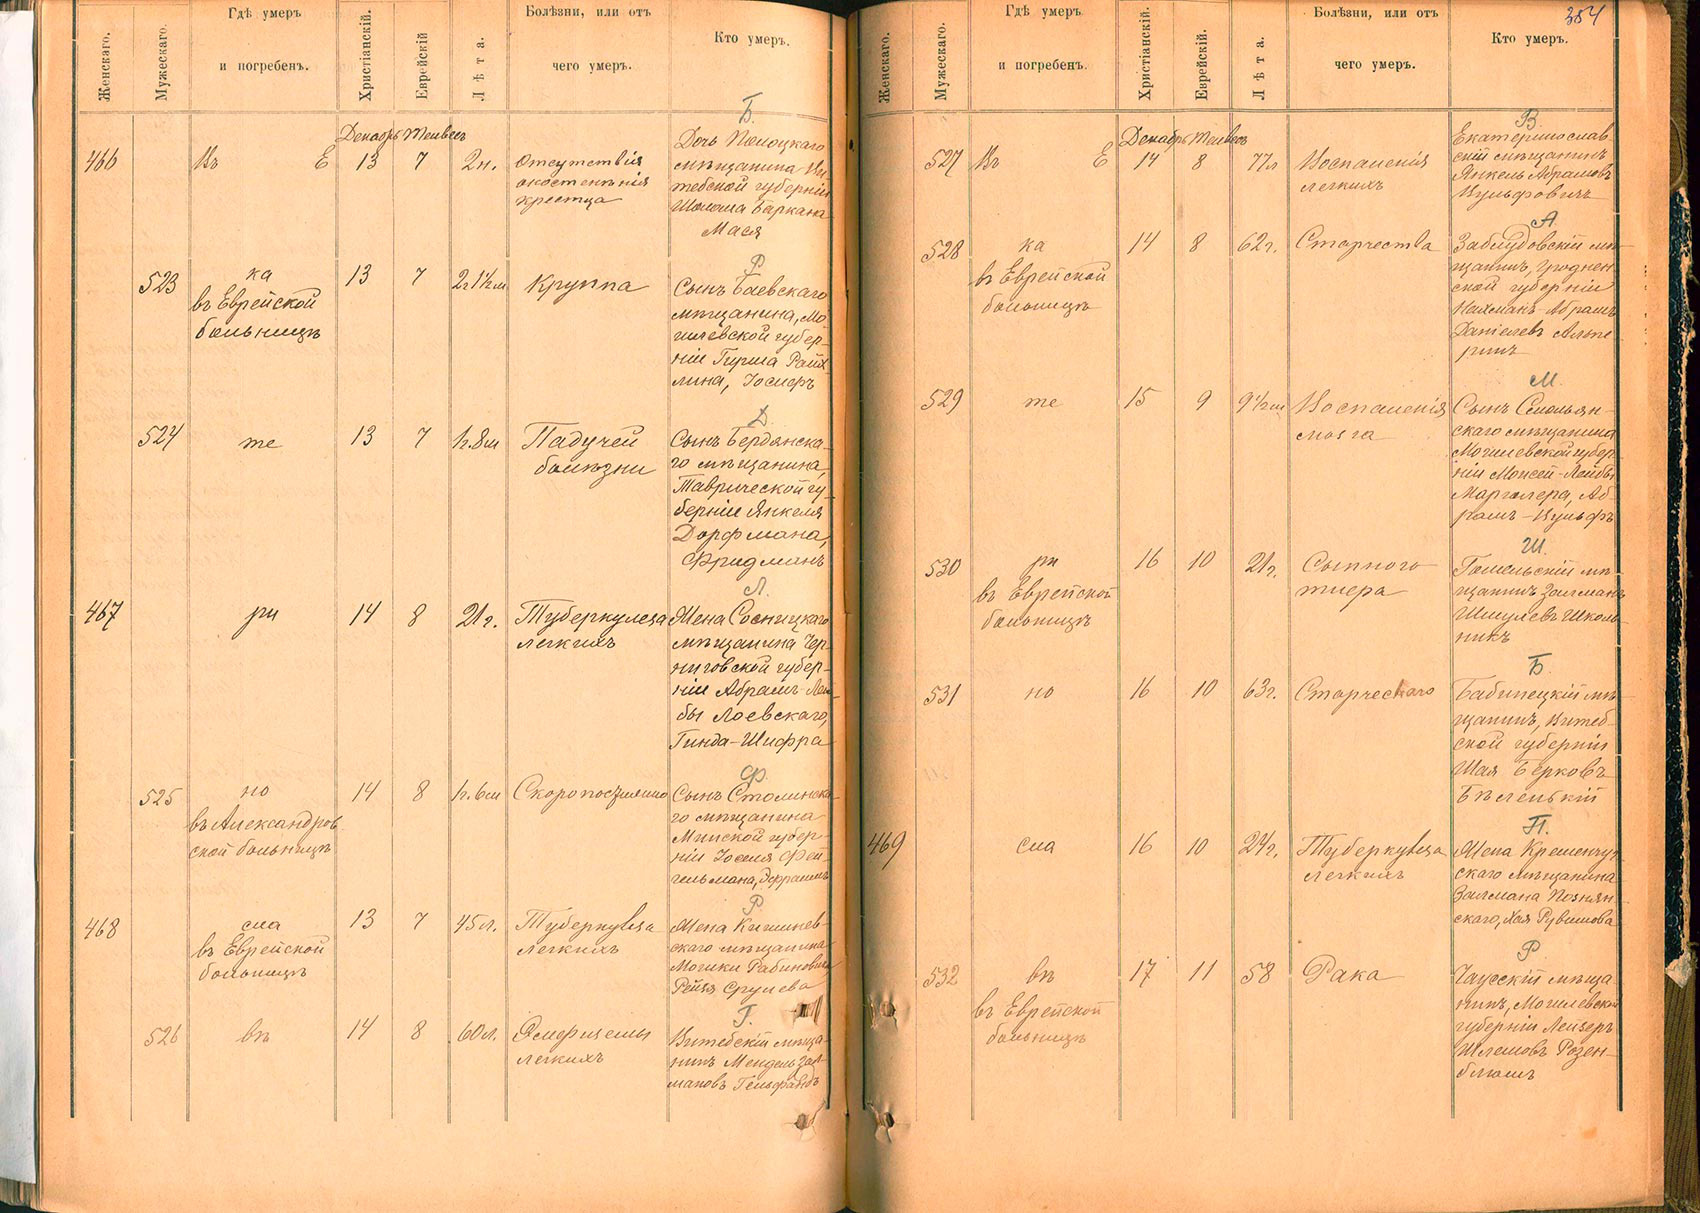 Женскаго.
Мужескаго.
Гдѣ умеръ
и погребенъ.
Христіанскій.
Еврейскій
Лѣта.
Болѣзни, или отъ
чего умеръ.
Кто умеръ.
Б.
Декабрь Тейвесъ
466 Въ Е 13 7 2н.
Отсутствія
окостенѣнія
крестца
Дочь Полоцкаго
мѣщанина Ви-
тебской губерніи
Шолома Баркана
Мася
Р
523 ка 13 7 2г 1½м Круппа
въ Еврейской
больницѣ
Сынъ Баевскаго
мѣщанина, Мо-
гилевской губер-
ніи Гирша Райх-
лина, Іосифъ
Д.
524 те 13 7 1г.8м
Падучей
болѣзни
Сынъ Бердянска-
го мѣщанина,
Таврической гу-
берніи Янкеля
Дорфмана,
Фридманъ
Л.
467 ри 14 8 21г.
Туберкулеза
легкихъ
Жена Сосницкаго
мѣщанина Чер-
ниговской губер-
ніи Абрамъ-Лей-
бы Лоевскаго,
Гинда-Шифра
Ф.
525 но 14 8 1г.6м Скоропостижно
въ Александров
ской больницѣ
Сынъ Столинска-
го мѣщанина
Минской губер-
ніи Іоселя Фей-
гельмана, Эфраимъ
Р.
468 сла 13 7 45л.
въ Еврейской
больницѣ
Туберкулеза
легкихъ
Жена Кишинев-
скаго мѣщанина
Мошки Рабиновича
Рейзя Срулева
Г.
526 въ 14 8 60л.
Эмфиземы
легкихъ
Витебскій мѣща-
нинъ Мендель Зал-
мановъ Гельфандъ
354
Женскаго.
Мужескаго.
Гдѣ умеръ
и погребенъ.
Христіанскій.
Еврейскій.
Лѣта.
Болѣзни, или отъ
чего умеръ.
Кто умеръ.
В.
Декабрь Тейвесъ
527 Въ Е 14 8 77л
Воспаленія
легкихъ
Екатеринослав
скій мѣщанинъ
Янкель Абрамовъ
Вульфовичъ
А.
528 ка 14 8 62г. Старчества
въ Еврейской
больницѣ
Заблудовскій мѣ-
щанинъ, Гроднен
ской губерніи
Нахманъ-Абрамъ
Даніелевъ Альпе
ринъ
М.
529 те 15 9 9½м
Воспаленія
мозга
Сынъ Смольян-
скаго мѣщанина
Могилевской губер-
ніи Мовсей-Лейбы
Марголера, Аб-
рамъ-Вульфъ
Ш.
530 ри 16 10 21г.
въ Еврейской
больницѣ
Сыпного
тифа
Гомельскій мѣ-
щанинъ Залманъ
Шмулевъ Школь-
никъ
Б.
531 но 16 10 63г. Старческаго
Бабинецкій мѣ-
щанинъ, Витеб-
ской губерніи
Шая Берковъ
Бѣленькій
П.
469 сла 16 10 24г.
Туберкулеза
легкихъ
Жена Кременчуг-
скаго мѣщанина
Залмана Познян-
скаго, Хая Рувимова
Р
532 въ 17 11 58 Рака
въ Еврейской
больницѣ
Чаусскій мѣща-
нинъ, Могилевской
губерніи Лейзеръ
Шлемовъ Розен-
блюмъ